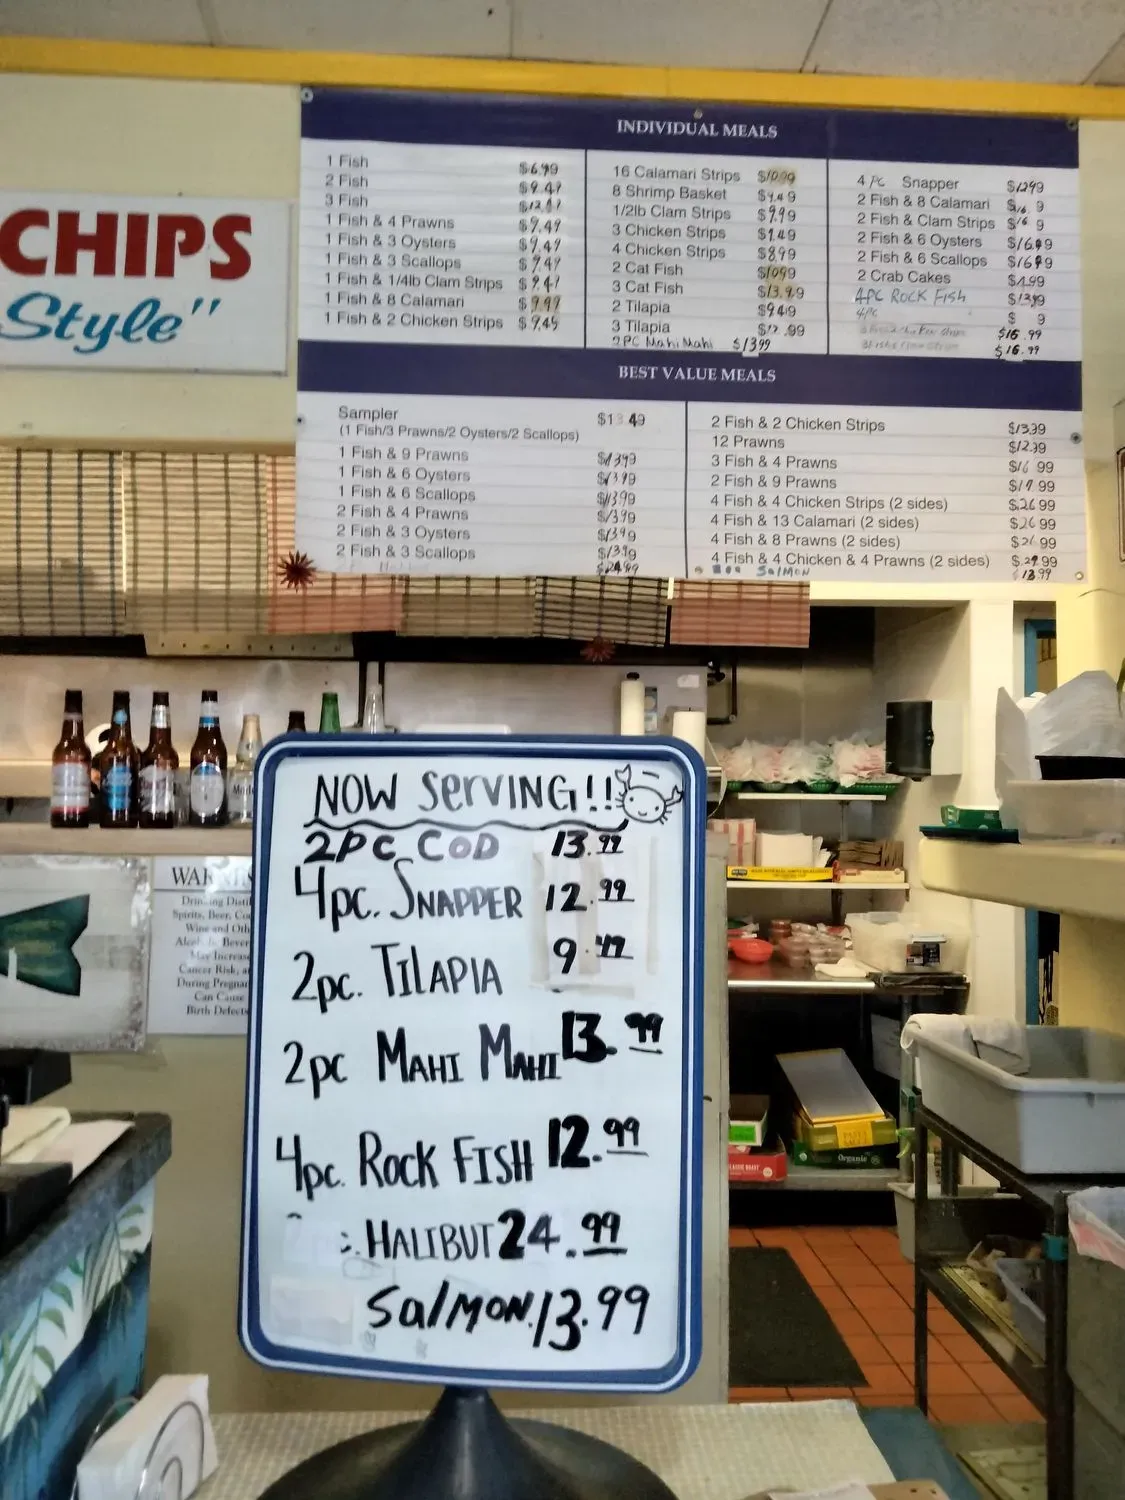 CHIPS
Style"
INDIVIDUAL MEALS
1 Fish $6.99
2 Fish $9.49
3 Fish
1 Fish & 4 Prawns $9.49
1 Fish & 3 Oysters $9.49
1 Fish & 3 Scallops $9.49
1 Fish & 1/4lb Clam Strips $9.49
1 Fish & 8 Calamari $9.99
1 Fish & 2 Chicken Strips $9.45
16 Calamari Strips $10.99
8 Shrimp Basket $9.49
1/2lb Clam Strips $9.99
3 Chicken Strips
4 Chicken Strips $8.99
2 Cat Fish $10.99
3 Cat Fish $13.99
2 Tilapia $9.49
3 Tilapia $12.99
2PC Mahi Mahi $13.99
4 PC Snapper $12.99
2 Fish & 8 Calamari
2 Fish & Clam Strips
2 Fish & 6 Oysters $16.99
2 Fish & 6 Scallops $16.99
2 Crab Cakes
4PC ROCK FISH $13.99
4PC $ 9
$16.99
$16.99
BEST VALUE MEALS
Sampler $13.49
(1 Fish/3 Prawns/2 Oysters/2 Scallops)
1 Fish & 9 Prawns $13.99
1 Fish & 6 Oysters $13.99
1 Fish & 6 Scallops $13.99
2 Fish & 4 Prawns $13.99
2 Fish & 3 Oysters $13.99
2 Fish & 3 Scallops $13.99
$24.99
2 Fish & 2 Chicken Strips $13.39
12 Prawns $12.39
3 Fish & 4 Prawns $16.99
2 Fish & 9 Prawns $17.99
4 Fish & 4 Chicken Strips (2 sides) $26.99
4 Fish & 13 Calamari (2 sides) $26.99
4 Fish & 8 Prawns (2 sides) $26.99
4 Fish & 4 Chicken & 4 Prawns (2 sides) $29.99
SalMON $13.99
NOW SERVING!!
2PC COD 13.99
4pc. SNAPPER 12.99
2pc. TILAPIA 9.49
2pc MAHI MAHI 13.99
4pc. ROCK FISH 12.99
HALIBUT 24.99
SalMON 13.99
Drinking
Spirits, Beer,
Wine and
May Increase
Cancer Risk,
During
Can Cause
Birth Defects
Organic